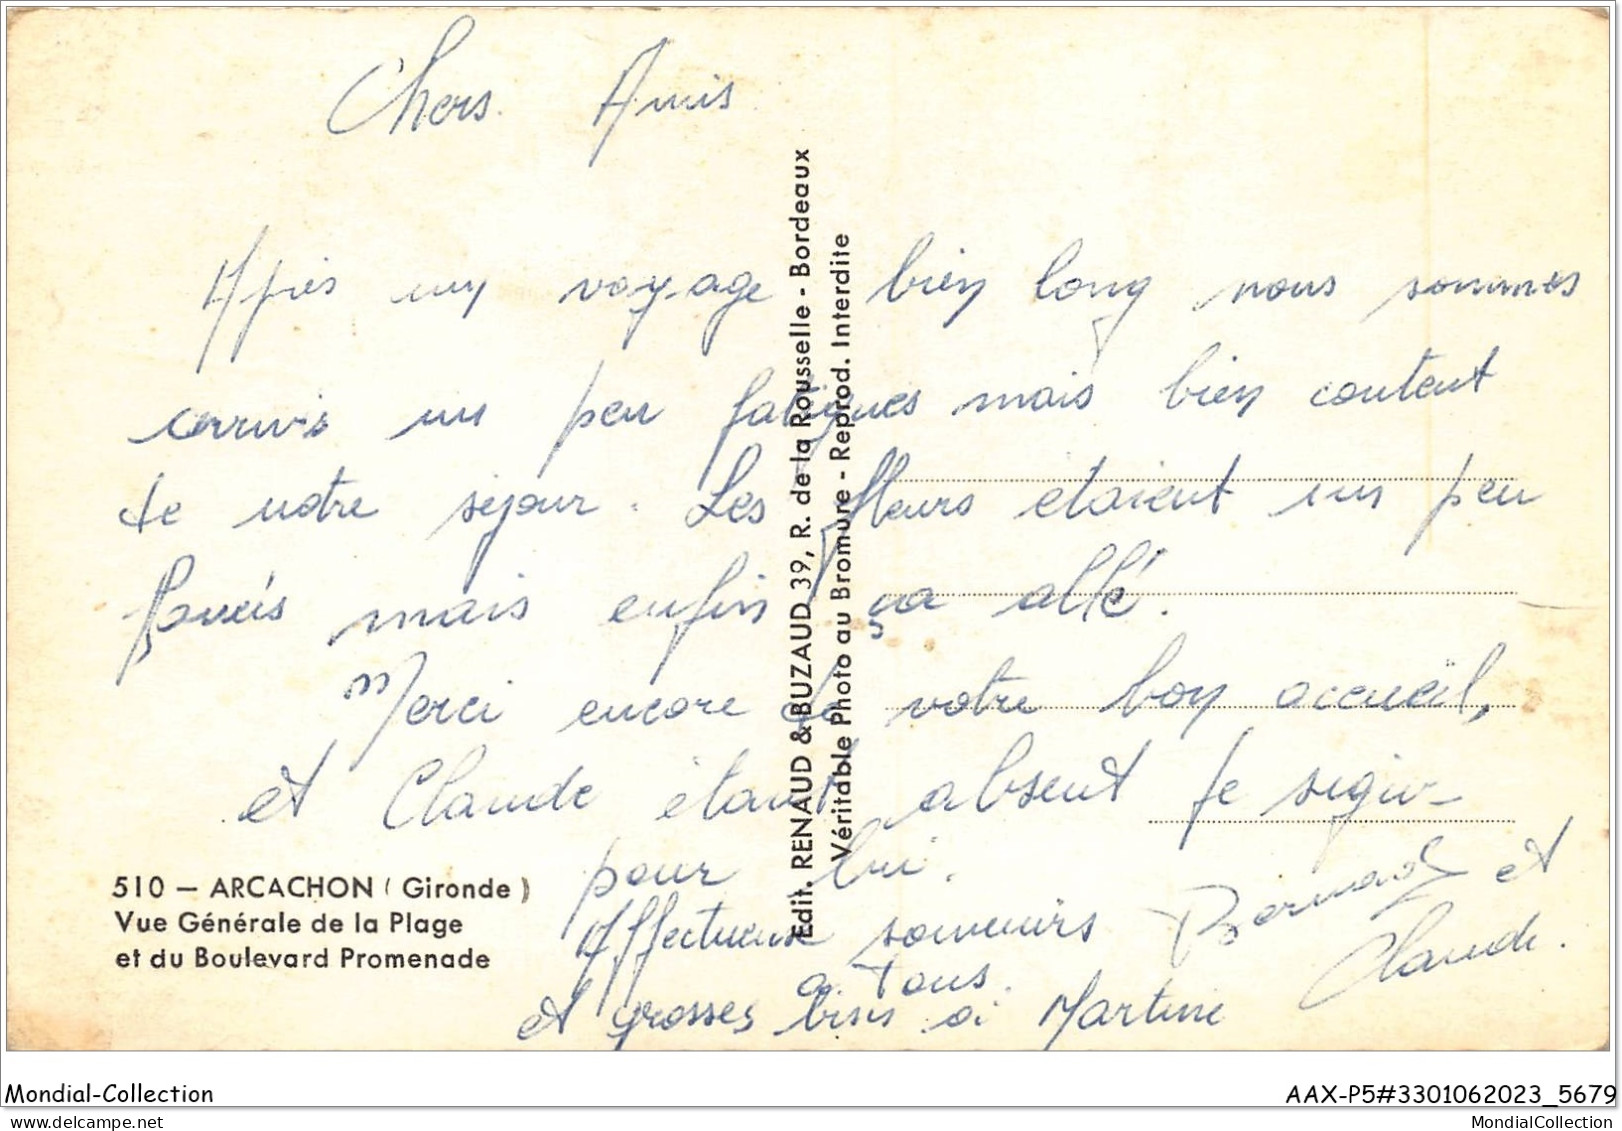 Chers Amis
Après un voyage bien long nous sommes
arrivis un peu fatigues mais bien content
de notre sejour. Les fleurs etaient un peu
fanéés mais enfin ça allé.
Merci encore de votre bon accueil,
et Claude étant absent je sign-
pour lui.
Affectueuse souvenirs Bernard et
a Tous. Claude.
et grosses bises a Martine
Edit. RENAUD & BUZAUD 39, R. de la Rousselle - Bordeaux
Véritable Photo au Bromure - Reprod. Interdite
510 — ARCACHON (Gironde)
Vue Générale de la Plage
et du Boulevard Promenade
Mondial-Collection AAX-P5#3301062023_5679
delcampe.net MondialCollection